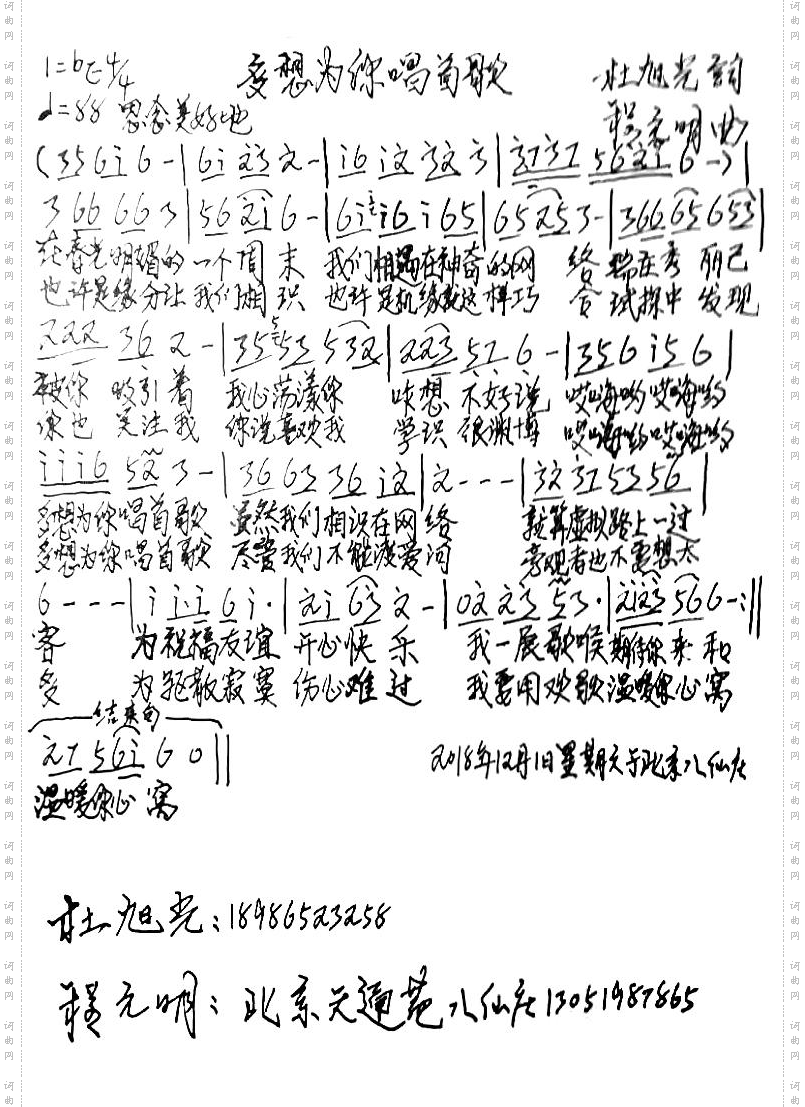 1=bE 4/4
多想为你唱首歌
杜旭光 词
♩=88 思念美好地
程元明 曲
(35 6i 6 - | 6i 23 2 - | i6 i2 32 3 | 3131 5621 6 -) |
3 66 66 3 | 56 2i 6 - | 6i i6 i 65 | 65 25 3 - | 366 65 6 53 |
在春光明媚的 一个周 末 我们相遇在神奇的网 络 端在秀 丽已
也许是缘分让 我们相 识 也许是机缘就这样巧 合 试探中 发现
222 36 2 - | 35 53 532 | 223 51 6 - | 356 i5 6 |
被你 吸引着 我心荡漾你 咋想 不好说 哎嗨哟哎嗨哟
你也 关注我 你说喜欢我 学识 很渊博 哎嗨哟哎嗨哟
iii6 52 3 - | 36 63 36 i2 | 2 - - - | 32 31 53 56 |
多想为你唱首歌 虽然我们相识在网 络 就算虚拟路上一过
多想为你唱首歌 尽管我们不能谈爱河 旁观者也不要想太
6 - - - | i ii 6 i· | 2i 63 2 - | 02 23 53· | 2123 566 - :||
客 为祝福友谊 开心快 乐 我一展歌喉期待你来 和
多 为驱散寂寞 伤心难 过 我要用欢歌温暖你心窝
结束句
21 56i 6 0 ||
2018年12月1日星期六于北京八仙庄
温暖你心 窝
杜旭光:18986523258
程元明:北京天通苑八仙庄13051987865
词曲网